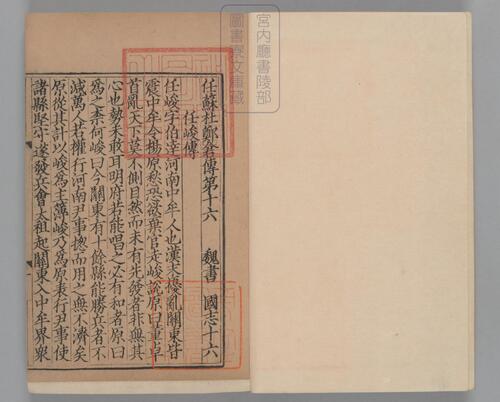 任蘇杜鄭倉傳第十六 魏書 國志十六
任峻傳
任峻字伯達河南中牟人也漢末擾亂關東皆
震中牟令楊原愁恐欲棄官走峻說原曰董卓
首亂天下莫不側目然而未有先發者非無其
心也勢未敢耳明府若能唱之必有和者原曰
為之柰何峻曰今關東有十餘縣能勝兵者不
減萬人若權行河南尹事揔而用之無不濟矣
原從其計以峻為主簿峻乃為原表行尹事使
諸縣堅守遂發兵會太祖起關東入中牟界衆
宮内廳書陵部
圖書寮文庫藏